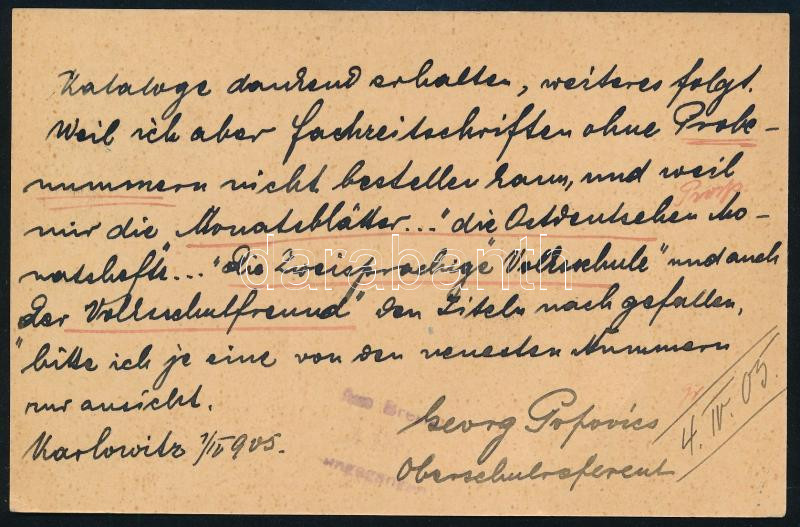 Kataloge dankend erhalten, weiteres folgt.
Weil ich aber Fachzeitschriften ohne Probe-
nummern nicht bestellen kann, und weil
Prosp.
mir die „Monatsblätter..." die Ostdeutschen Mo-
natshefte..." „die Zweisprachige Volksschule" und auch
„der Volksschulfreund" den Titeln nach gefallen,
bitte ich je eine von den neuesten Nummern
zur ansicht.
Karlowitz 1/IV 905.
Georg Popovics
Oberschulreferent
4. IV. 05.
darabanth